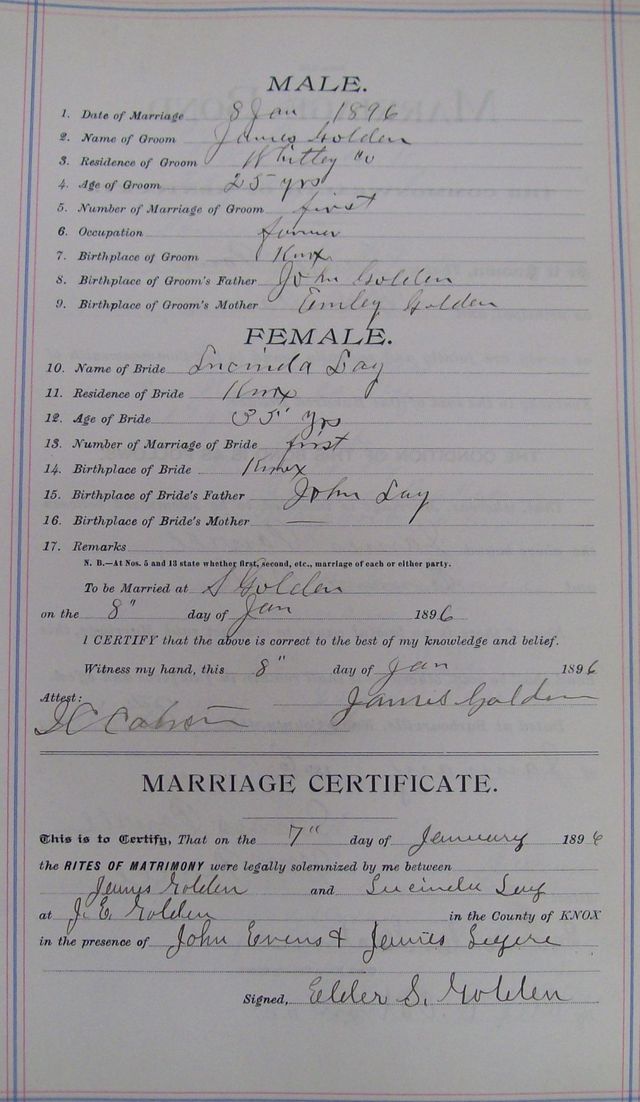 MALE.
1. Date of Marriage 8 Jan 1896
2. Name of Groom James Golden
3. Residence of Groom Whitley Co
4. Age of Groom 25 yrs
5. Number of Marriage of Groom first
6. Occupation farmer
7. Birthplace of Groom Knox
8. Birthplace of Groom's Father John Golden
9. Birthplace of Groom's Mother Emley Golden
FEMALE.
10. Name of Bride Lucinda Lay
11. Residence of Bride Knox
12. Age of Bride 35 yrs
13. Number of Marriage of Bride first
14. Birthplace of Bride Knox
15. Birthplace of Bride's Father John Lay
16. Birthplace of Bride's Mother —
17. Remarks
N. B.—At Nos. 5 and 13 state whether first, second, etc., marriage of each or either party.
To be Married at S Golden
on the 8" day of Jan 1896
I CERTIFY that the above is correct to the best of my knowledge and belief.
Witness my hand, this 8" day of Jan 1896
Attest: James Golden
MARRIAGE CERTIFICATE.
This is to Certify, That on the 7" day of January 1896
the RITES OF MATRIMONY were legally solemnized by me between
James Golden and Lucinda Lay
at J. E. Golden in the County of KNOX
in the presence of John Evens & James
Signed, Elder S. Golden